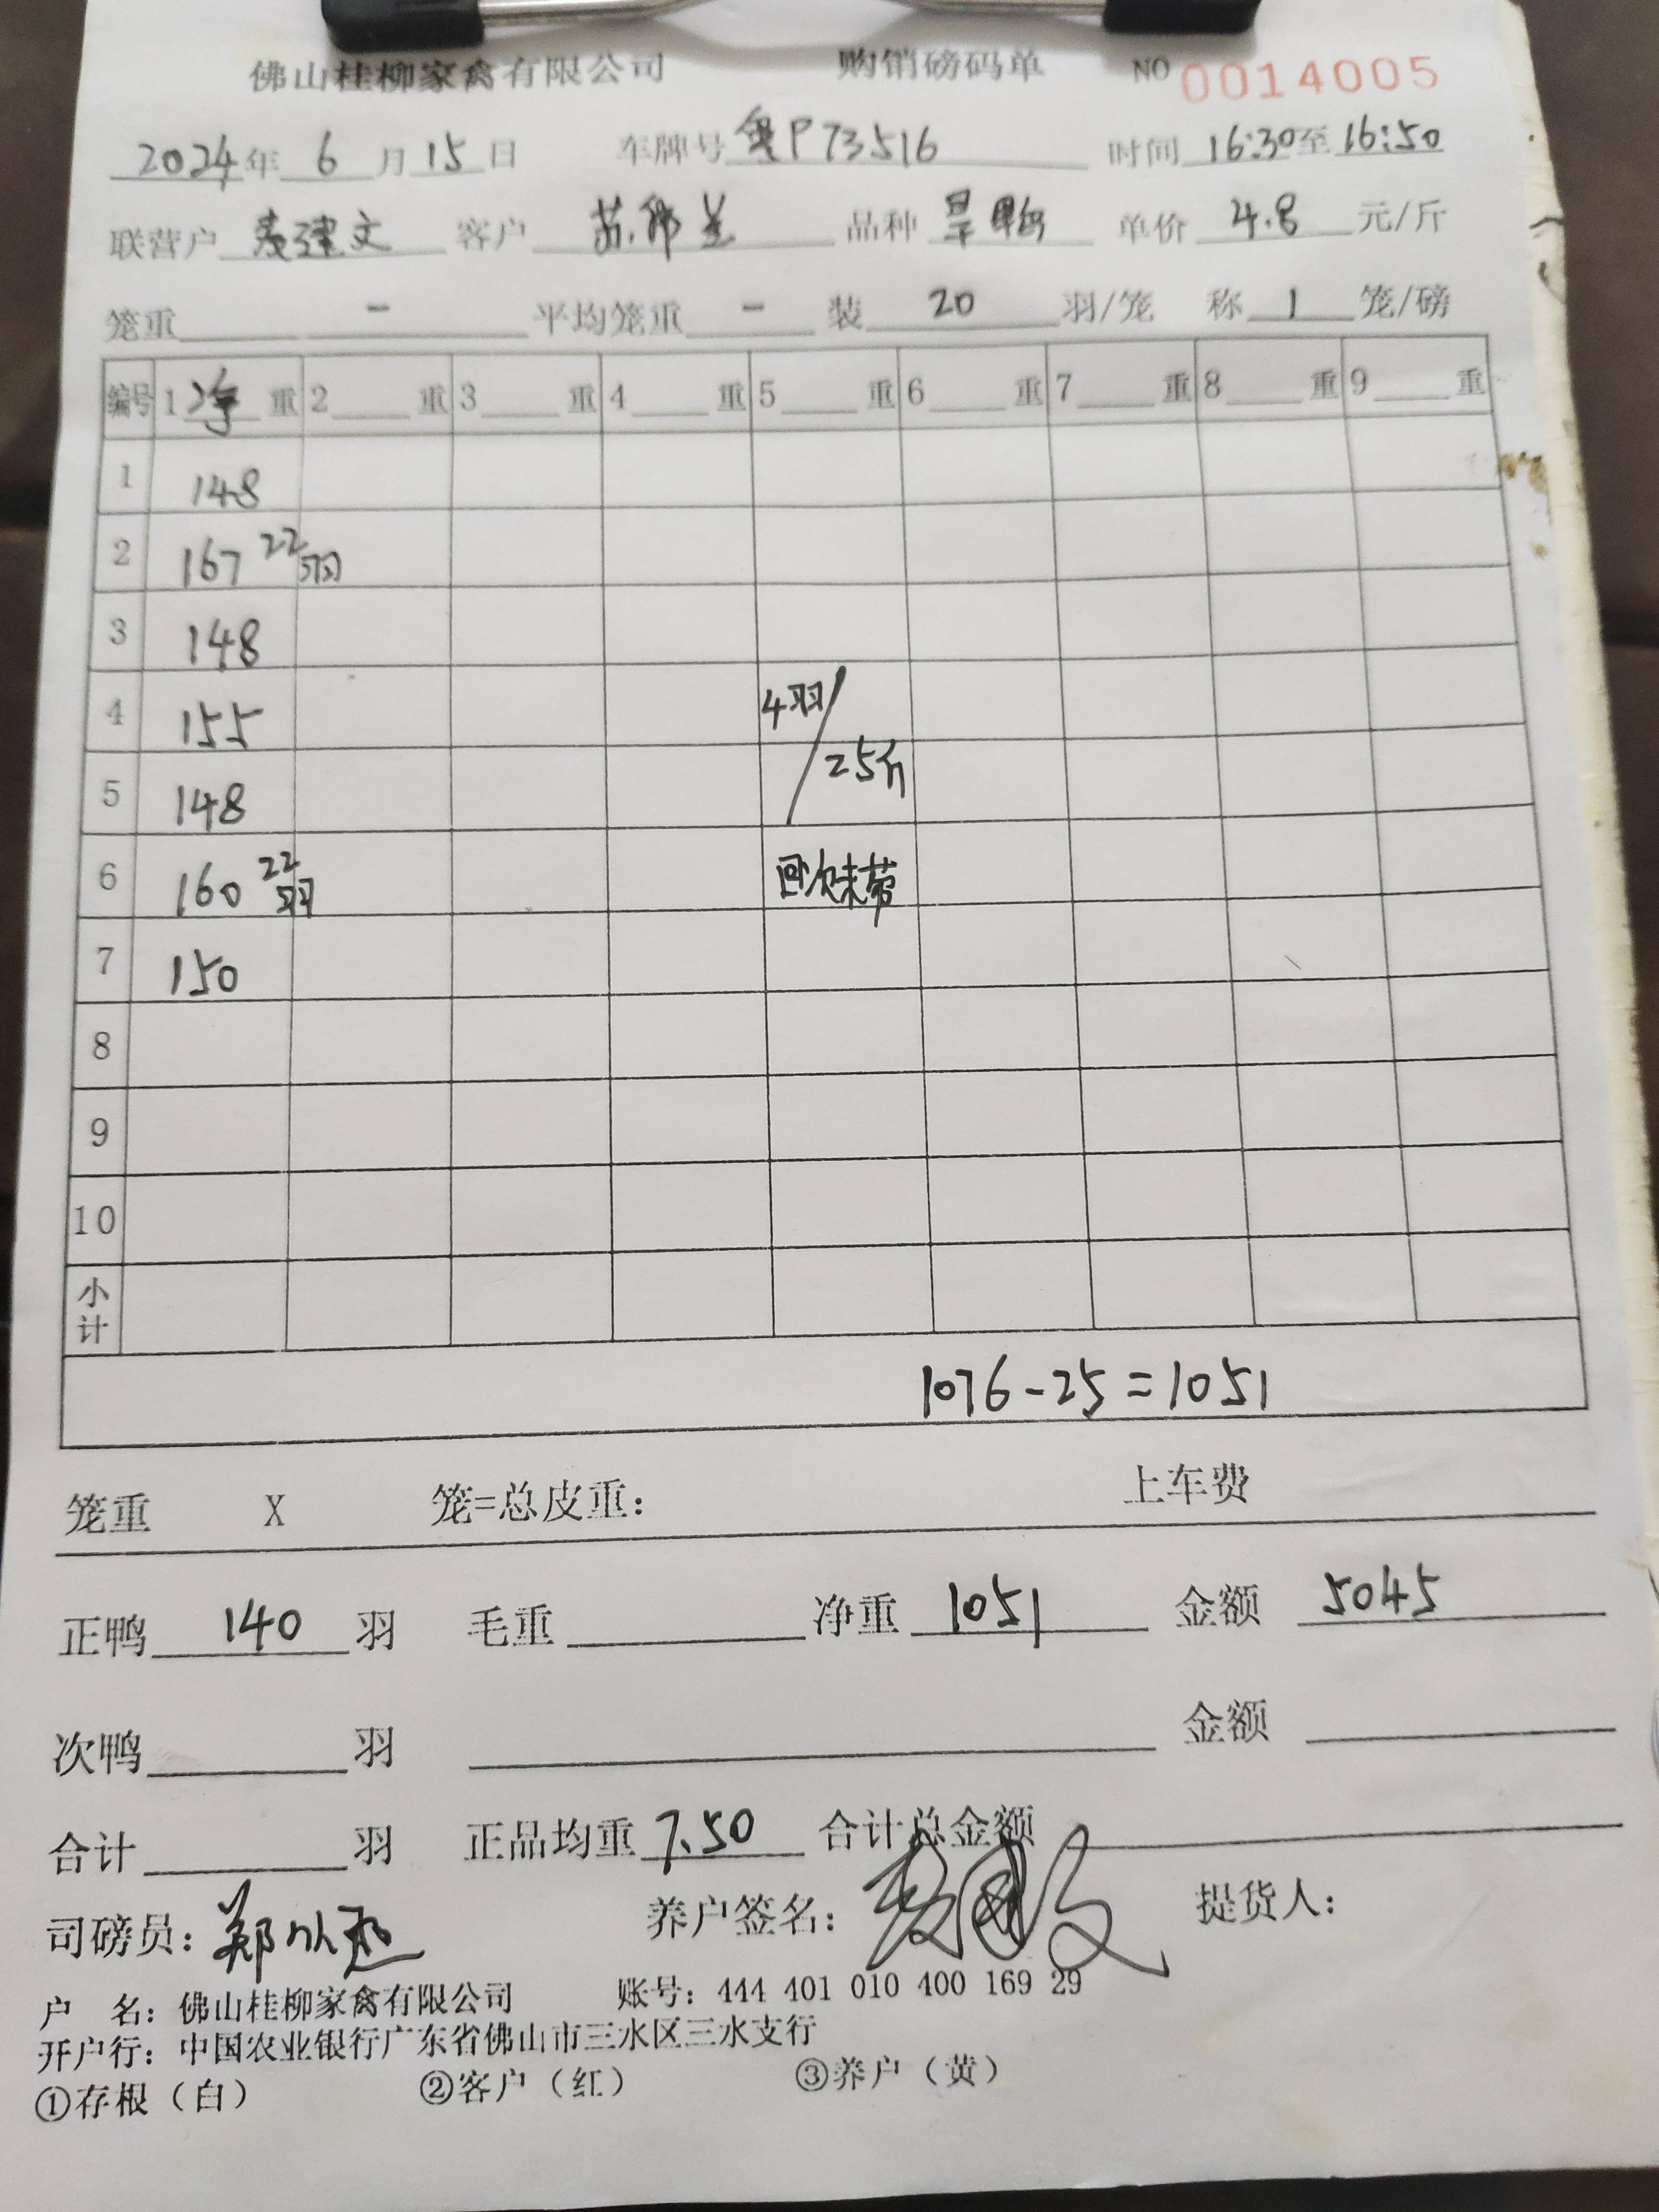 佛山桂柳家禽有限公司 购销磅码单 NO 0014005
2024年 6 月 15 日 车牌号 粤P73516 时间 16:30至16:50
联营户 建文 客户 苏 品种 旱鸭 单价 4.8 元/斤
笼重 - 平均笼重 - 装 20 羽/笼 称 1 笼/磅
编号 1 净 重 2 重 3 重 4 重 5 重 6 重 7 重 8 重 9 重
1 148
2 167 22羽
3 148
4 155 4羽/
5 148 25斤
6 160 22羽 回次未带
7 150
8
9
10
小计
1076-25=1051
笼重 X 笼=总皮重: 上车费
正鸭 140 羽 毛重 净重 1051 金额 5045
次鸭 羽 金额
合计 羽 正品均重 7.50 合计总金额
司磅员: 郑 养户签名: 提货人:
户 名: 佛山桂柳家禽有限公司 账号: 444 401 010 400 169 29
开户行: 中国农业银行广东省佛山市三水区三水支行
①存根(白) ②客户(红) ③养户(黄)